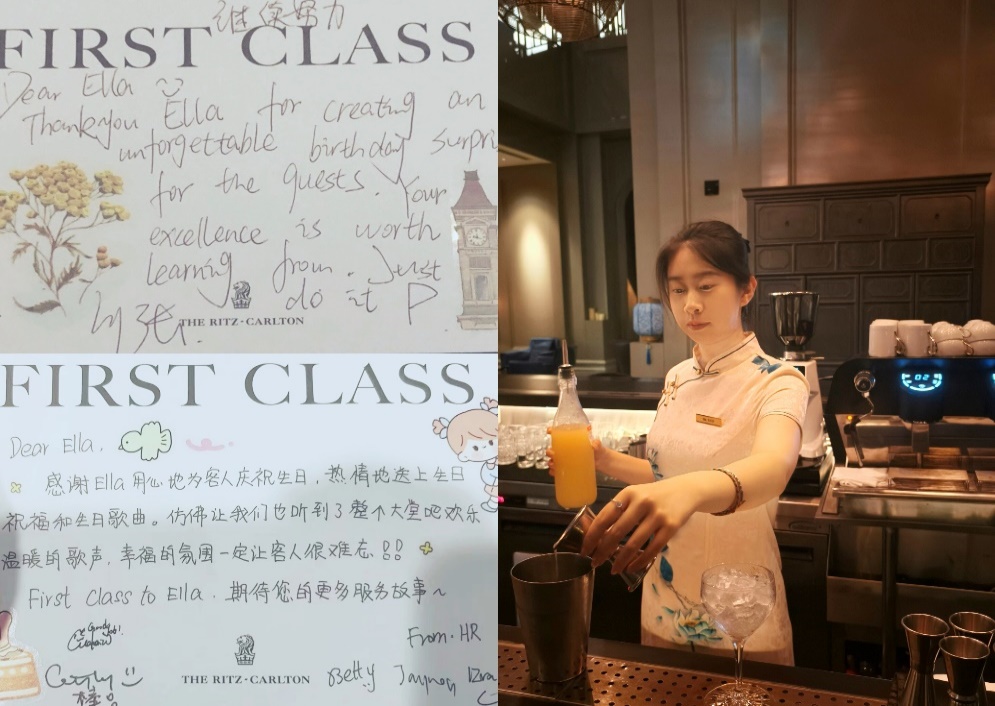 谁像努力
FIRST CLASS
Dear Ella
Thankyou Ella for creating an
unforgettable birthday surpri
for the guests. Your
excellence is worth
learning from. Just
do it P.
THE RITZ-CARLTON
FIRST CLASS
Dear Ella,
感谢Ella用心地为客人庆祝生日，热情地送上生日
祝福和生日歌曲。仿佛让我们也听到了整个大堂吧欢乐
温暖的歌声，幸福的氛围一定让客人很难忘!!
First Class to Ella. 期待您的更多服务故事~
Good Job!
From. HR
THE RITZ-CARLTON
Betty